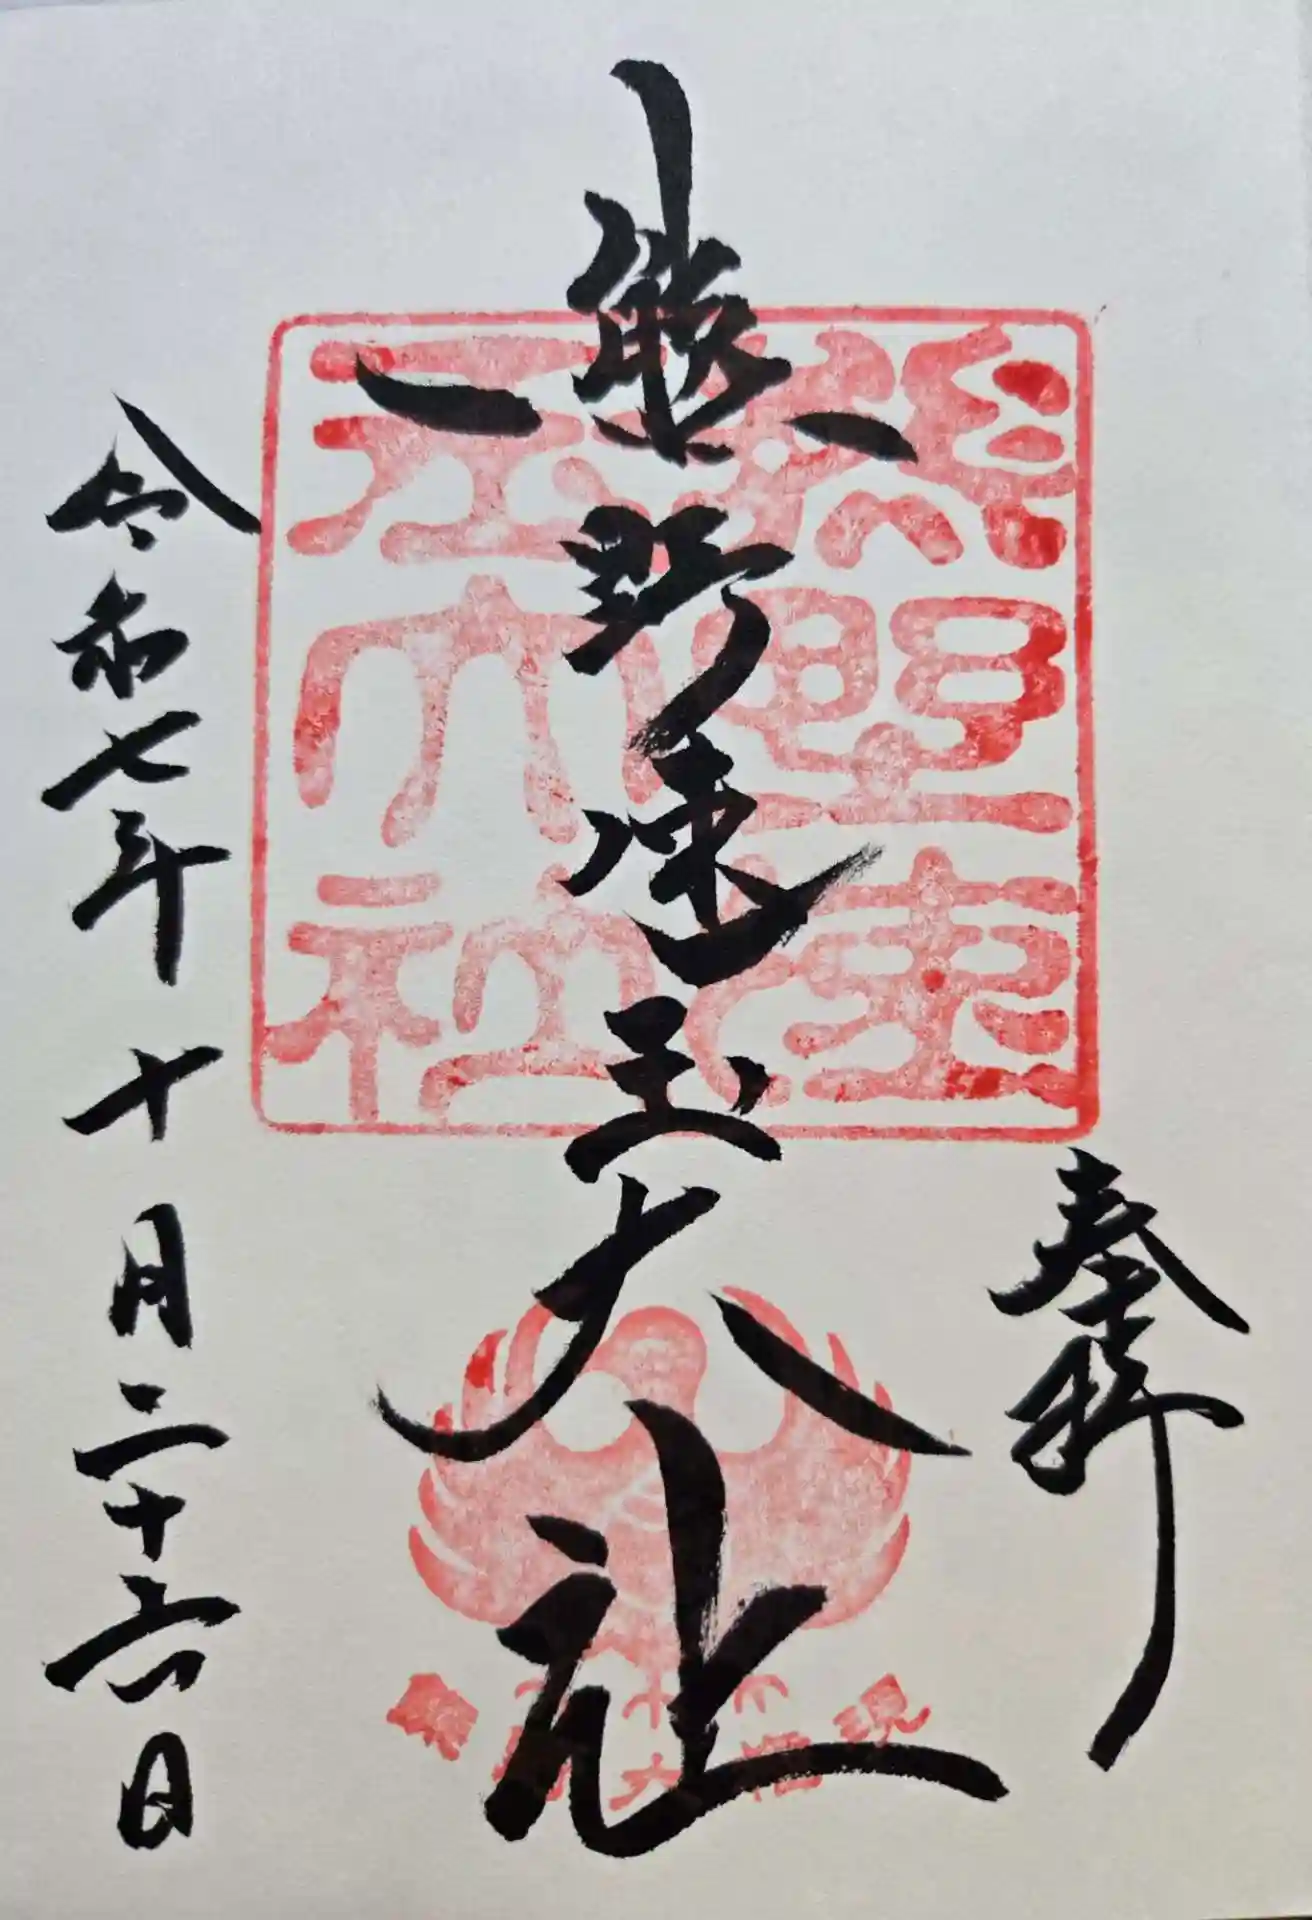 奉拝
熊野速玉大社
令和七年十月二十六日
熊野速
玉大社
熊野大権現